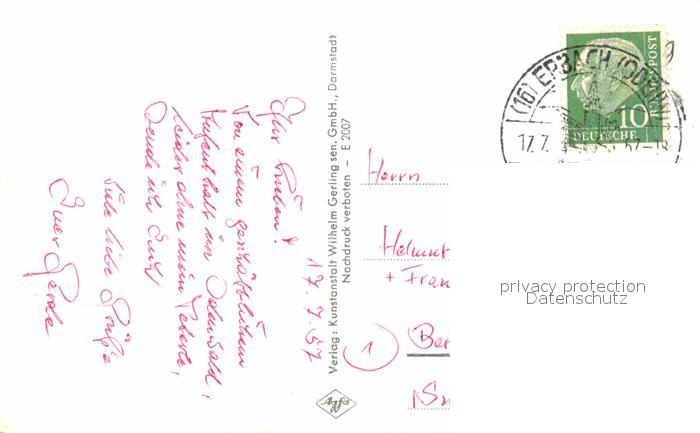 17.7.57
Ihr Lieben!
Von einem geschäftlichen
Aufenthalt im Odenwald,
leider ohne meine
Denke ich Euch
Viele liebe Grüße
Euer
Verlag: Kunstanstalt Wilhelm Gerling sen. GmbH., Darmstadt
Nachdruck verboten — E 2007
Agfa
(16) ERBACH (ODENW
17.7. 57-18
10
DEUTSCHE
BUNDESPOST
Herrn
Helmut
+ Frau
1
Ber
privacy protection
Datenschutz